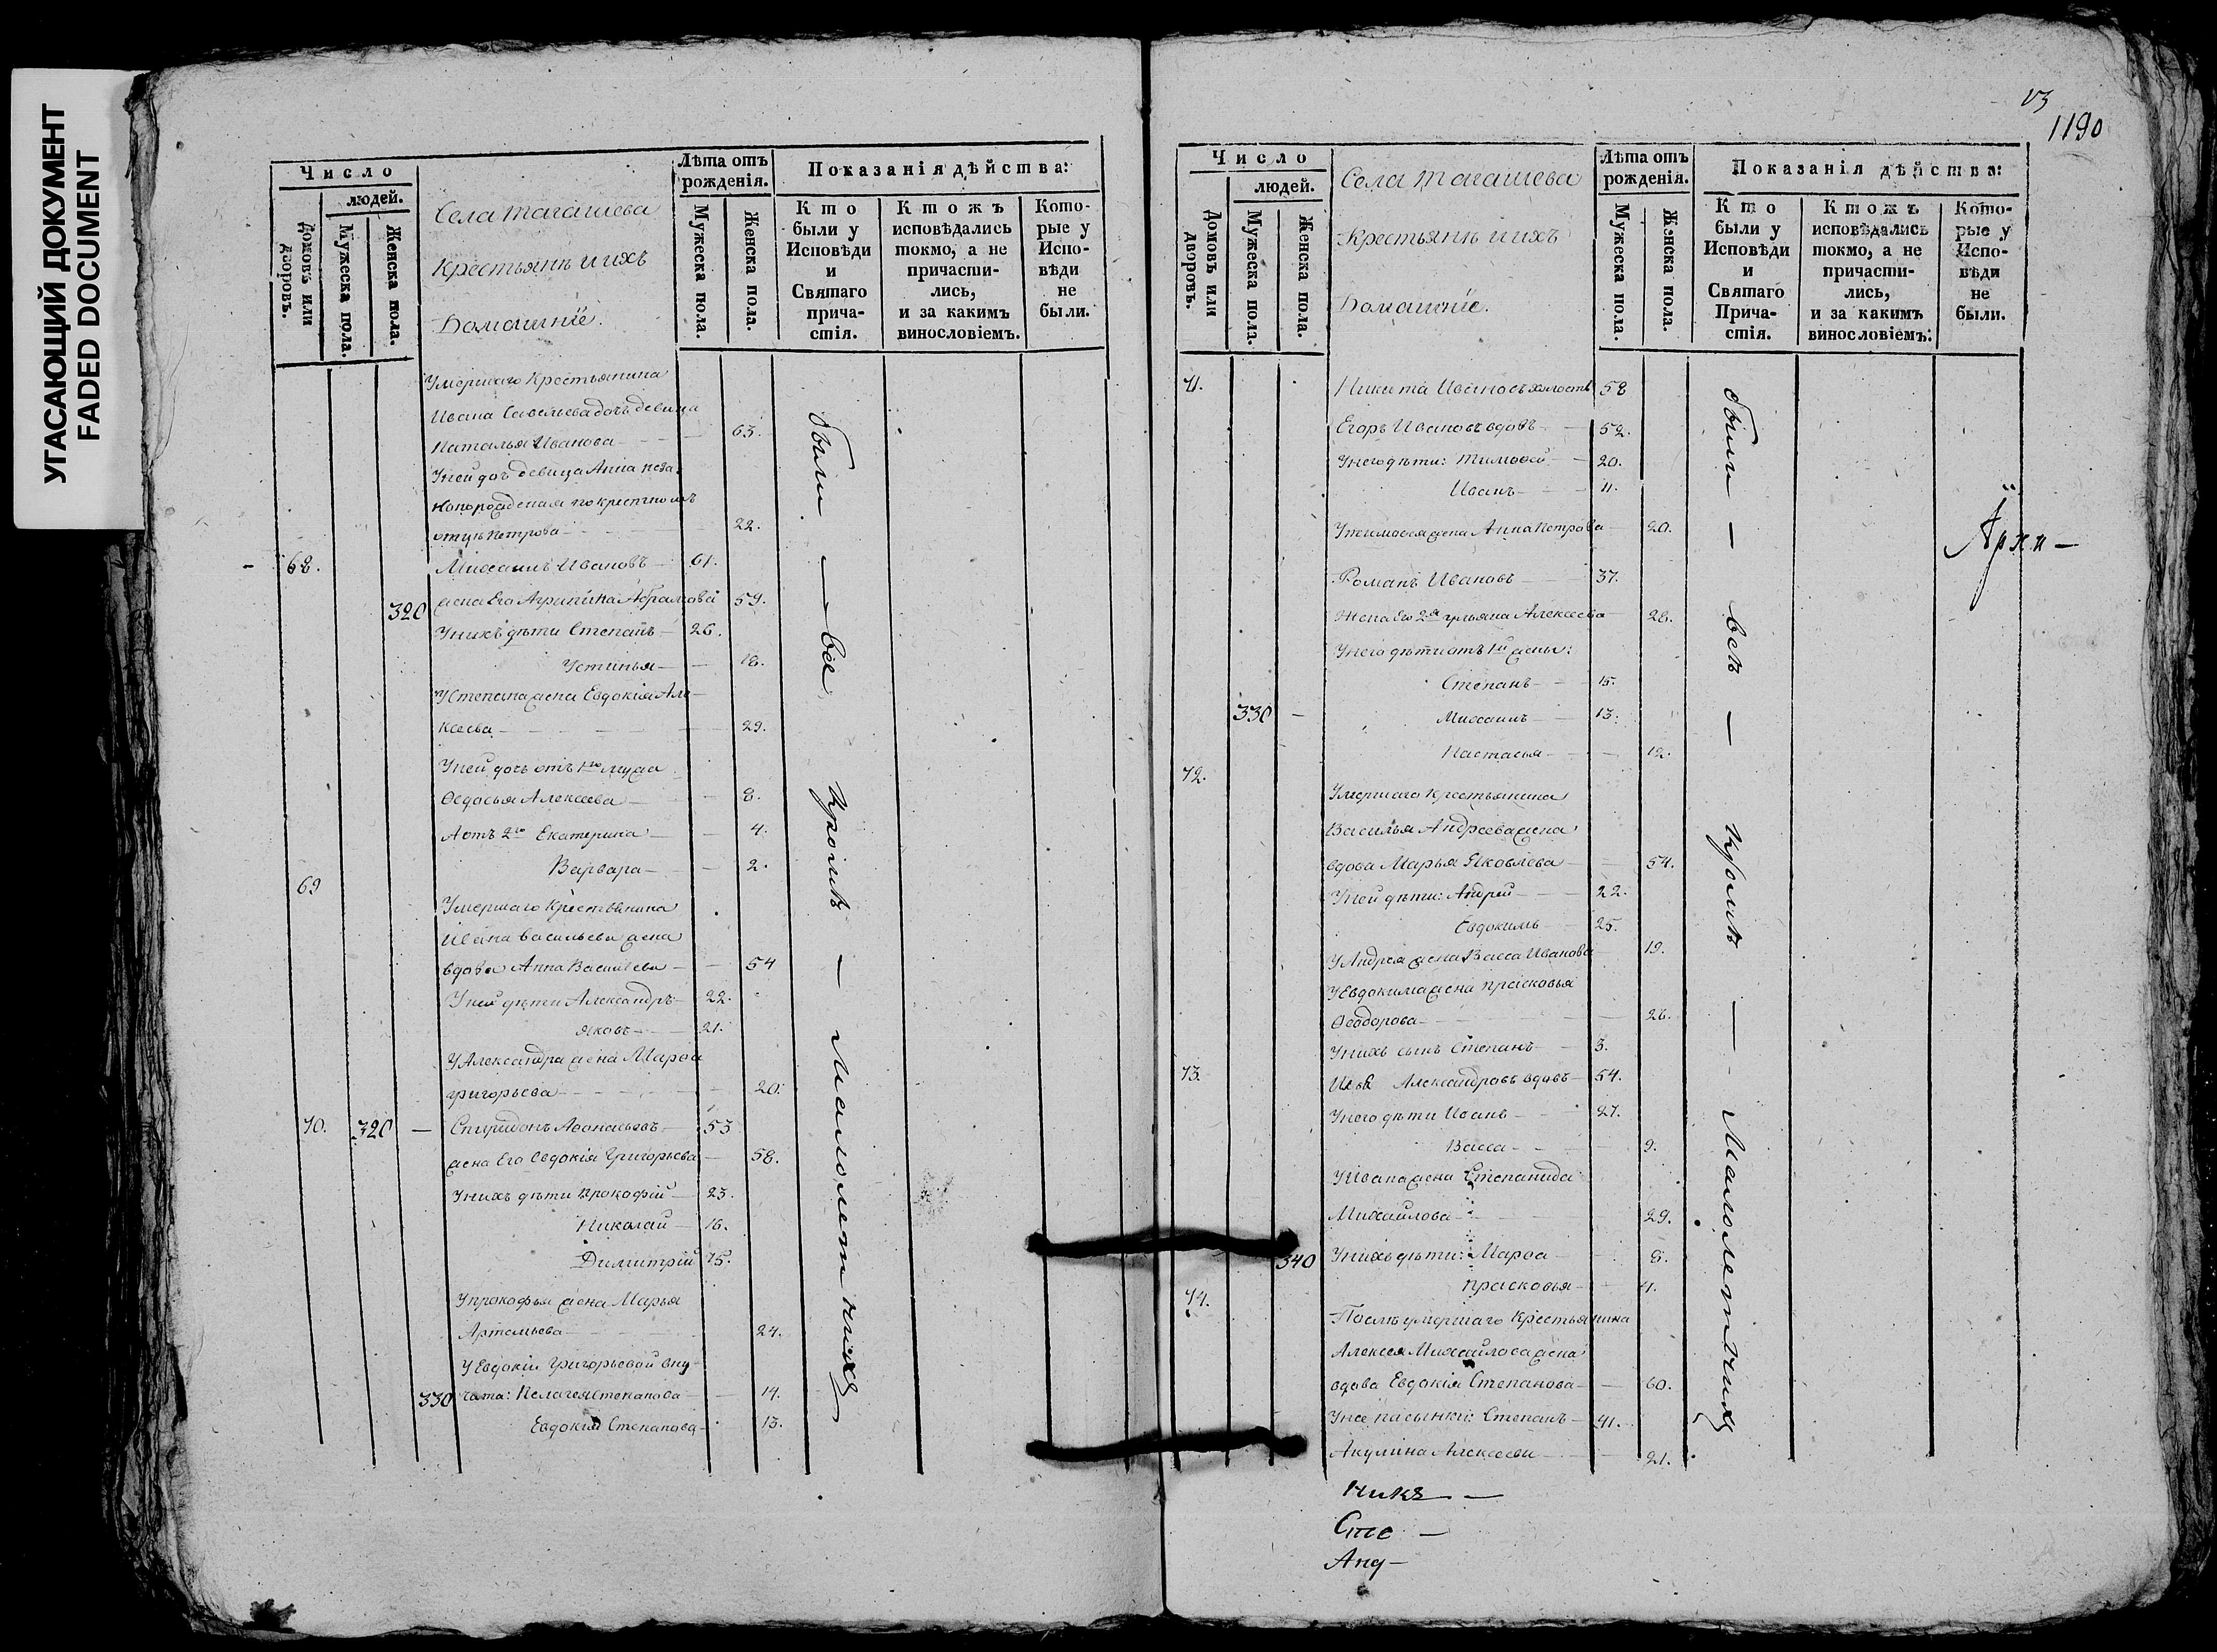 УГАСАЮЩИЙ ДОКУМЕНТ
FADED DOCUMENT
Число
людей.
Домовъ или дворовъ.
Мужеска пола.
Женска пола.
Села Тагашева
Крестьянъ и ихъ
Домашніе.
Лѣта отъ рожденія.
Мужеска пола.
Женска пола.
Показанія дѣйства:
Кто были у Исповѣди и Святаго причастія.
Ктожъ исповѣдались токмо, а не причастились, и за какимъ винословіемъ.
Которые у Исповѣди не были.
Умершаго Крестьянина
Ивана Савельева дочь девица
Наталья Иванова 63.
У ней дочь девица Анна неза-
коннорожденная по крестному
отцу Петрова 22.
68. Михаилъ Ивановъ 61.
320 жена Его Агрипина Абрамова 59.
У нихъ дѣти Степанъ 26.
Устинья 18.
У Степана жена Евдокія Але-
ксеева 29.
У ней дочь отъ 1го мужа
Ѳедосья Алексеева 8.
А отъ 2го Екатерина 4.
Варвара 2.
69 Умершаго Крестьянина
Ивана Васильева жена
вдова Анна Васильева 54
У ней дѣти Александръ 22.
Яковъ 21.
У Александра жена Марѳа
григорьева 20.
70. 320 Спиридонъ Аѳонасьевъ 53
жена Его Евдокія Григорьева 58.
У нихъ дѣти Прокофій 23.
Николай 16.
Димитрій 15.
У прокофья жена Марья
Артемьева 24.
У Евдокіи Григорьевой вну-
330 чата: Пелагея Степанова 14.
Евдокія Степанова 13.
были — все кромѣ — малолетнихъ
1190
Число
людей.
Домовъ или дворовъ.
Мужеска пола.
Женска пола.
Села Тагашева
Крестьянъ и ихъ
Домашніе.
Лѣта отъ рожденія.
Мужеска пола.
Женска пола.
Показанія дѣйства:
Кто были у Исповѣди и Святаго Причастія.
Ктожъ исповѣдались токмо, а не причастились, и за какимъ винословіемъ:
Которые у Исповѣди не были.
71. Никита Ивановъ холостъ 58
Егоръ Ивановъ вдовъ 52.
У него дѣти: Тимоѳей 20.
Иванъ 11.
У тимоѳея жена Анна Петрова 20.
Романъ Ивановъ 37.
Жена Его 2я ульяна Алексеева 28.
У него дѣти отъ 1й жены:
Степанъ 15.
330 Михаилъ 13.
Настасья 12.
72. Умершаго крестьянина
Василья Андреева жена
вдова Марья Яковлева 54.
У ней дѣти: Андрей 22.
Евдокимъ 25.
У Андрея жена Васса Иванова 19.
У Евдокима жена прасковья
Ѳеодорова 26.
У нихъ сынъ Степанъ 3.
73. Александровъ вдовъ 54.
У него дѣти Иванъ 27.
Васса 9.
У Ивана жена Степанида
Михайлова 29.
340 У нихъ дѣти: Марѳа 8.
прасковья 4.
74. После умершаго Крестьянина
Алексея Михайлова жена
вдова Евдокія Степанова 60.
У нее пасынки: Степанъ 41.
Акулина Алексеева 21.
были — всѣ — кромѣ — Малолетнихъ
Архи—
Сте —
Анд—